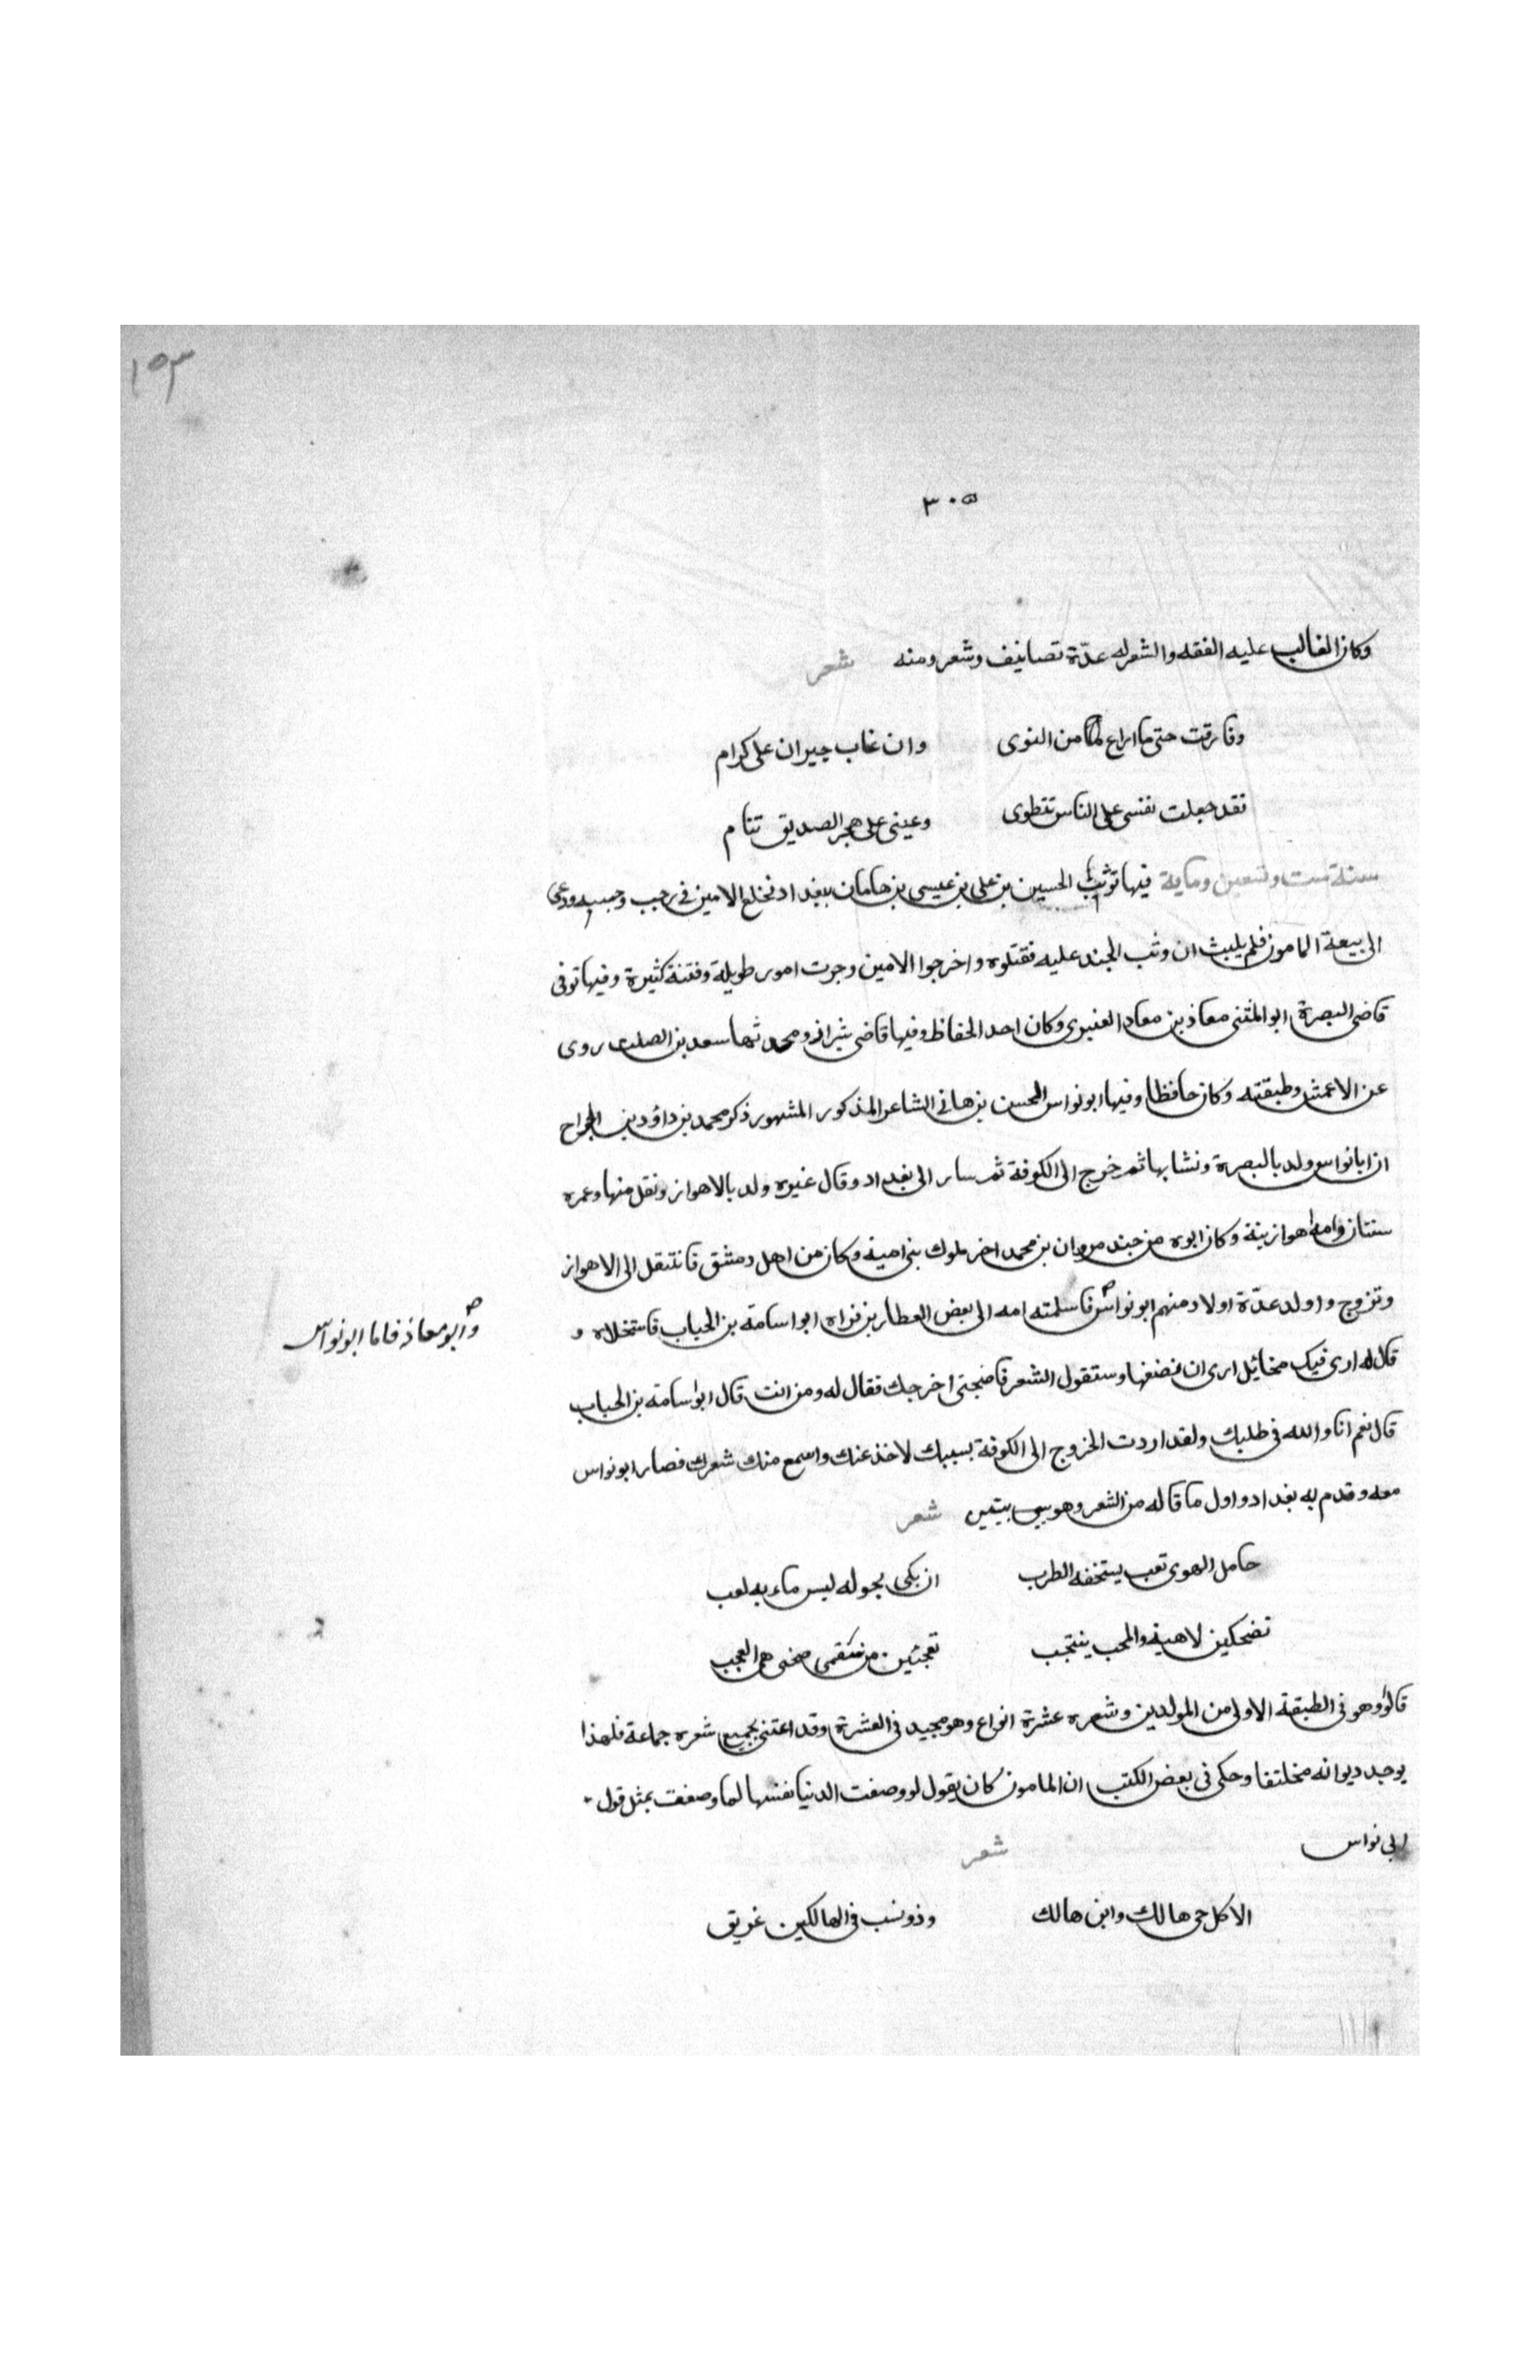 ١٥٣
٣٠٥
وكان الغالب عليه الفقه والشعر له عدّة تصانيف وشعر ومنه شعر
وفارقت حتى ما اراع من النوى وان غاب جيران على كرام
فقد جعلت نفسى على الناس تنطوى وعينى على هجر الصديق تنام
سنة ست وتسعين وماية فيها توثب الحسين بن على بن عيسى بن هامان ببغداد فخلع الامين فى رجب وحبسه ودعى
الى بيعة المامون فلم يلبث ان وثب الجند عليه فقتلوه واخرجوا الامين وجرت امور طويلة وفتنة كثيرة وفيها توفى
قاضى البصرة ابو المثنى معاذ بن معاد العنبرى وكان احد الحفاظ وفيها قاضى شيراز ومحدثها سعد بن الصلت روى
عن الاعمش وطبقته وكان حافظا وفيها ابو نواس الحسن بن هانى الشاعر المذكور المشهور ذكر محمد بن داؤد بن الجراح
ان ابا نواس ولد بالبصرة ونشا بها ثم خرج الى الكوفة ثم سار الى بغداد وقال غيره ولد بالاهواز ونقل منها وعمره
سنتان وامه اهوازينة وكان ابوه من جند مروان بن محمد اخر ملوك بنى امية وكان من اهل دمشق فانتقل الى الاهواز
وتزوج واولد عدّة اولاد منهم ابو نواس فاسلمته امه الى بعض العطارين فراه ابو اسامة بن الحباب فاستحلاه و
وابو معاذ فاما ابو نواس
قال له ارى فيك مخائيل ارى ان فضفها وستقول الشعر فاضجتى اخرجك فقال له ومن انت قال ابو اسامة بن الحباب
قال نعم انا والله فى طلبك ولقد اردت الخروج الى الكوفة بسببك لاخذ عنك واسمع منك شعرك فصار ابو نواس
معه وقدم به بغداد واول ما قاله من الشعر وهو بيتين شعر
حامل الهوى تعب يستخفه الطرب ان بكى يحوله ليس ماء به لعب
تضحكين لاهية والمحب ينتحب تعجبين من سقمى صحتى هى العجب
قالوا وهو فى الطبقة الاولى من المولدين وشعره عشرة انواع وهو مجيد فى العشرة وقد اعتنى بجميع شعره جماعة فلهذا
يوجد ديوانه مختلفا وحكى فى بعض الكتب ان المامون كان يقول لو وصفت الدنيا نفسها لما وصفت بمثل قول
ابى نواس شعر
الا كل حى هالك وابن هالك وذو نسب فى الهالكين غريق